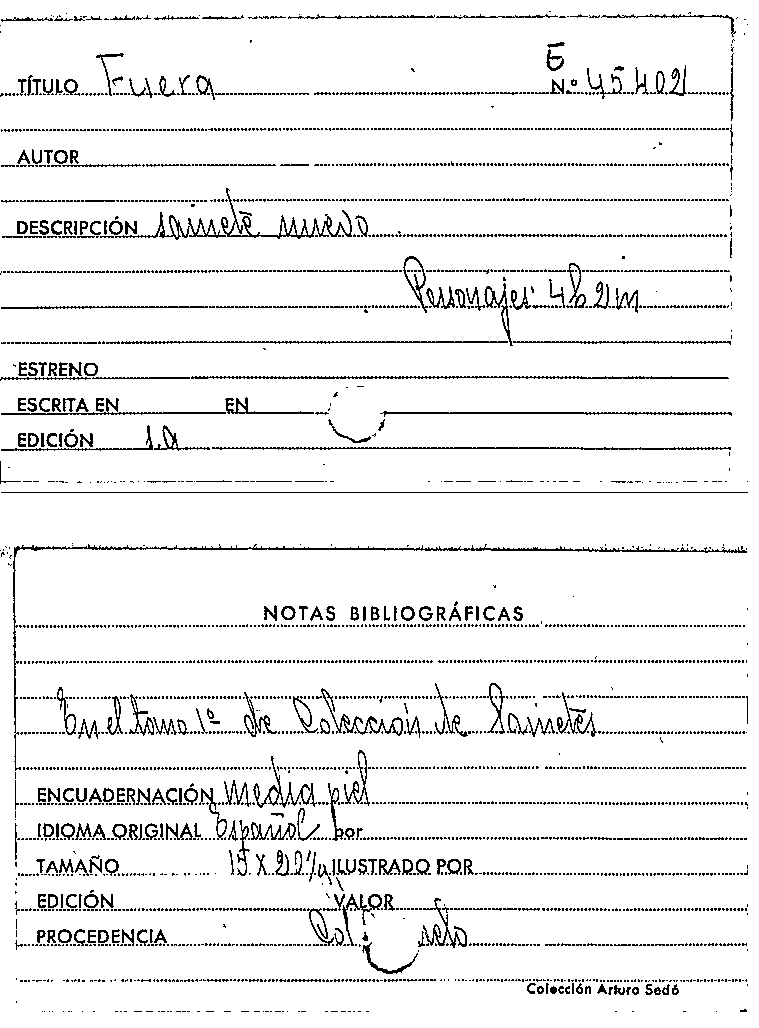 TÍTULO Fuera
E
N.º 45402
AUTOR
DESCRIPCIÓN sainete nuevo.
Personajes: 4h 2m
ESTRENO
ESCRITA EN EN
EDICIÓN s.a
NOTAS BIBLIOGRÁFICAS
En el tomo 1º de Colección de Sainetes
ENCUADERNACIÓN media piel
IDIOMA ORIGINAL Español por
TAMAÑO 15 X 20 ILUSTRADO POR
EDICIÓN VALOR
PROCEDENCIA
Colección Arturo Sedó